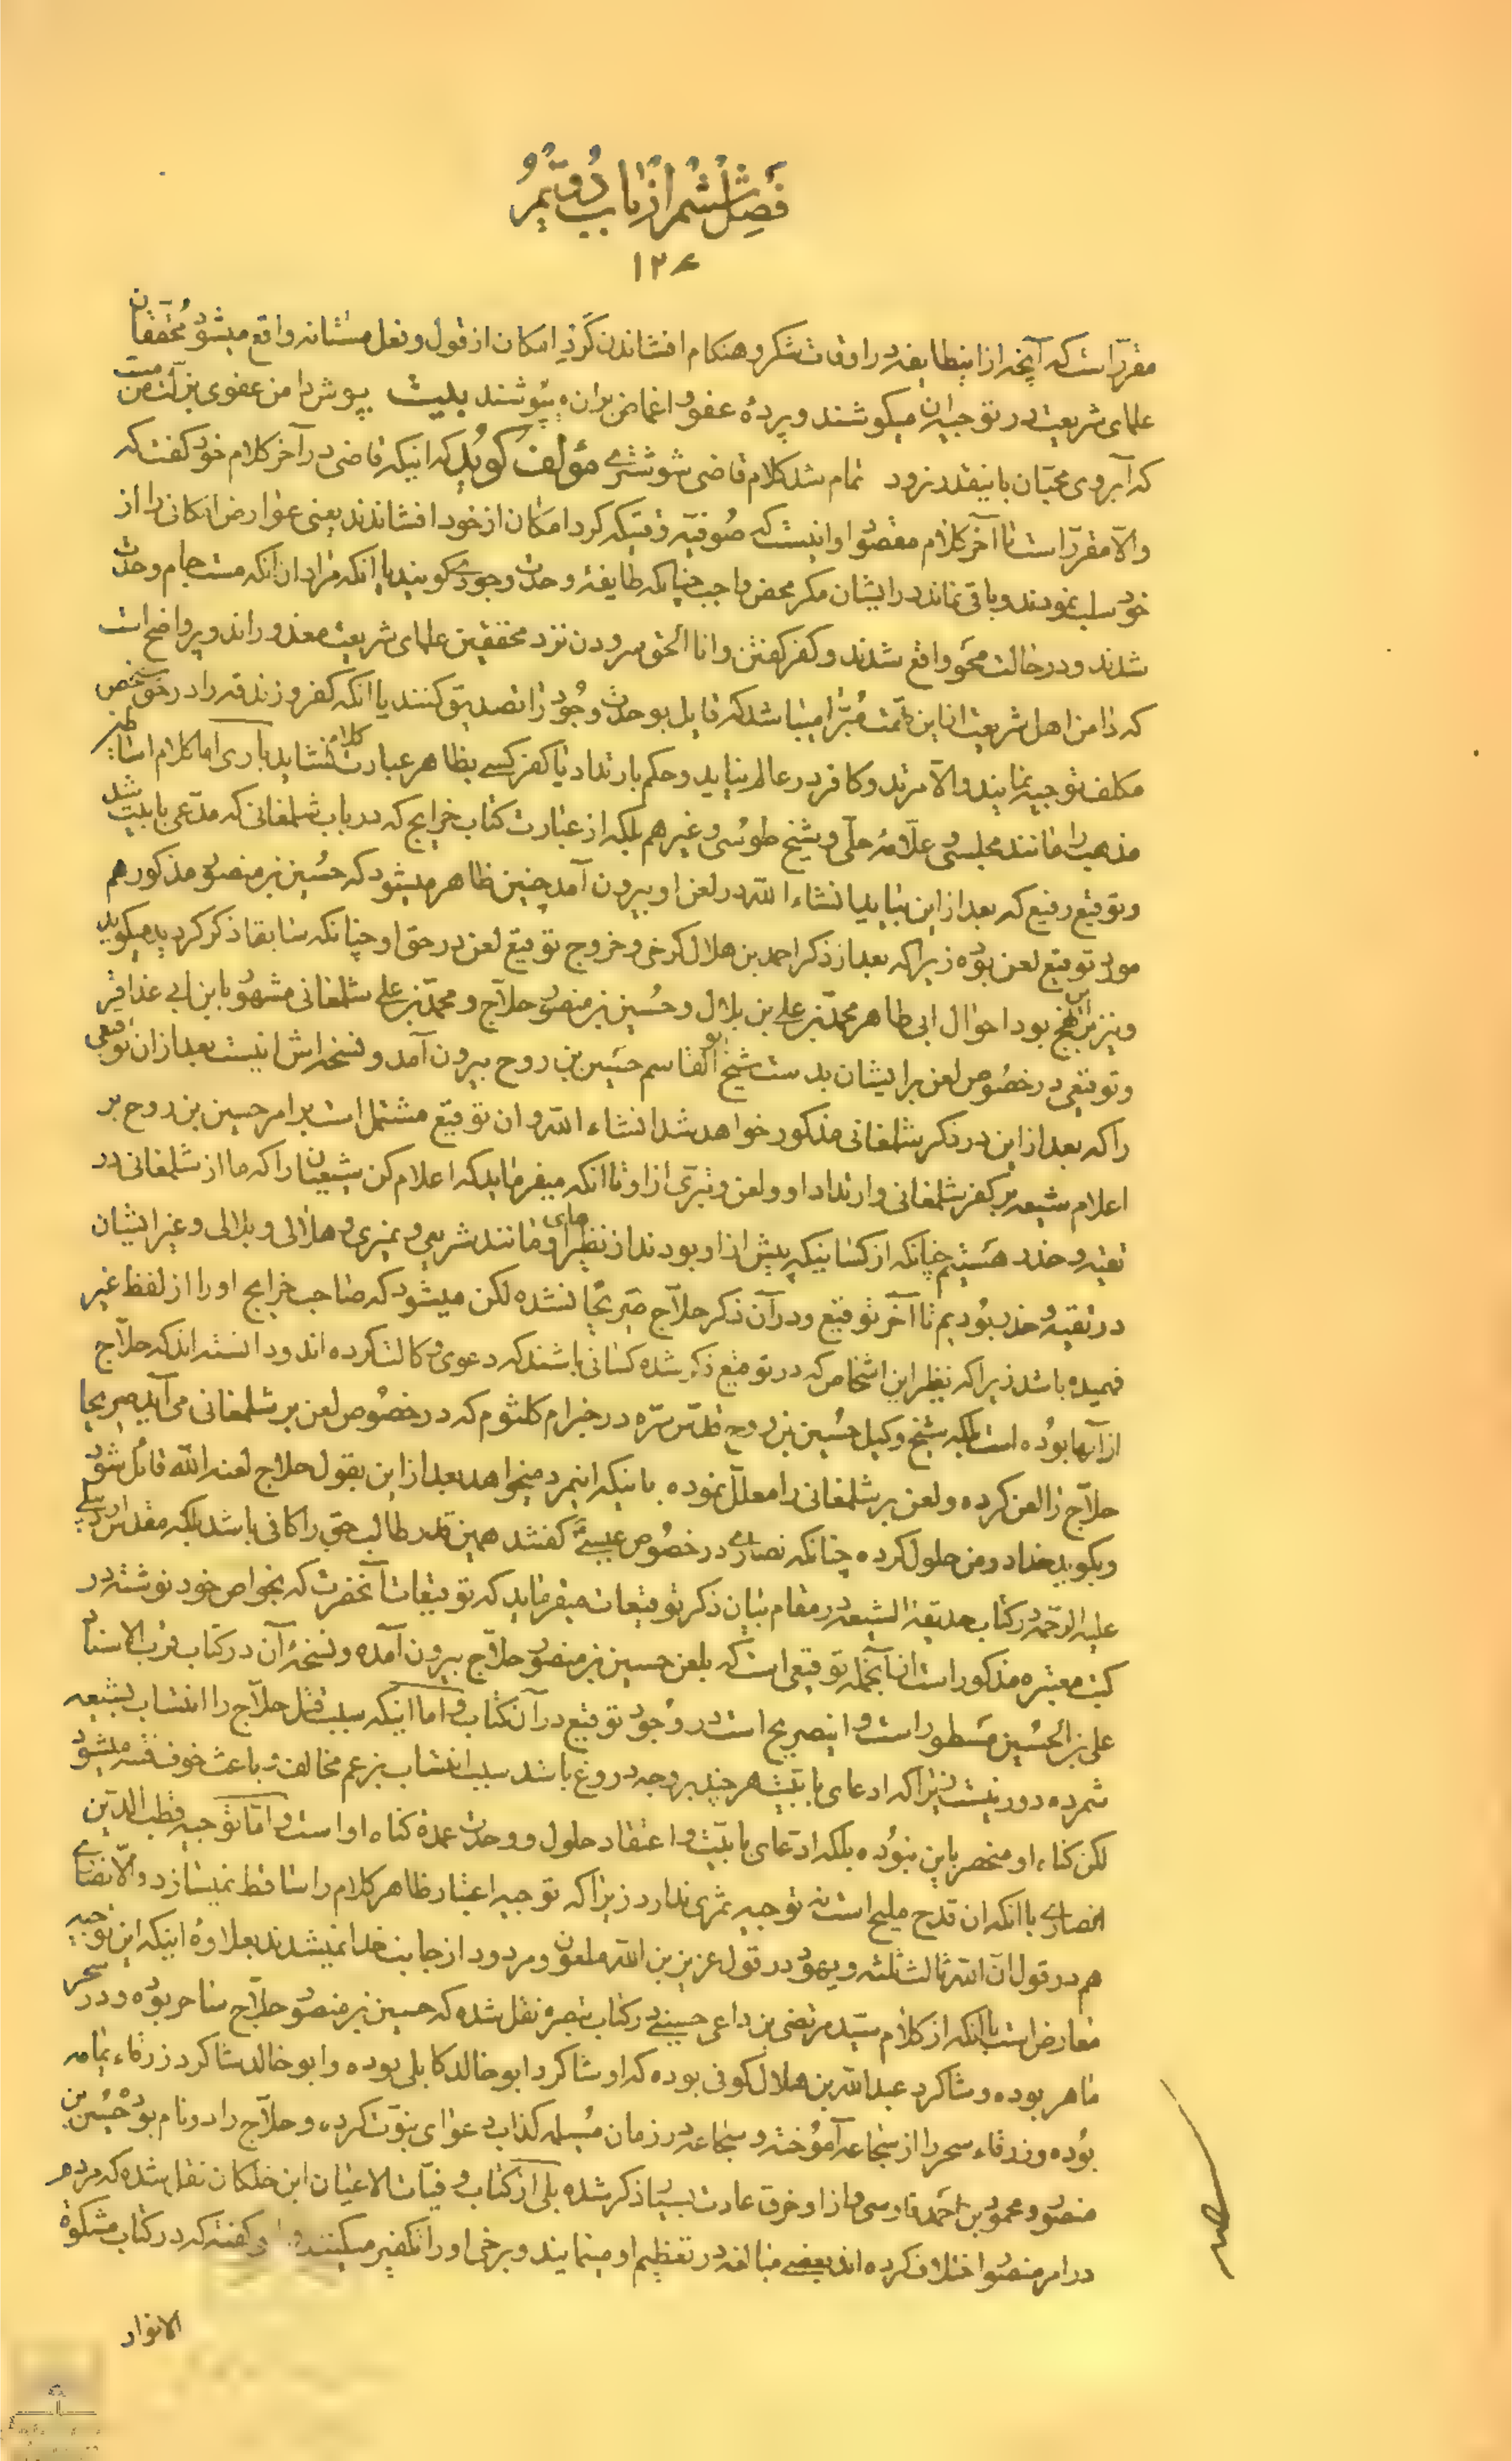 فصل ششم از باب دویم
۱۲۶
مقرر است که آنچه از اینطایفه در اوقات شکر و هنکام افشاندن کرد امکان از قول و فعل مستانه واقع میشود محققان
علمای شریعت در توجیه ان میکوشند و پرده عفو و اغماض بران میپوشند بیت بپوش دامن عفوی بزلت من مست
که آبروی محبان باینقدر نرود تمام شد کلام قاضی شوشتری مؤلف کوید که اینکه قاضی در آخر کلام خود کفت که
والا مقرر است تا آخر کلام مقصود او اینست که صوفیه وقتیکه کرد امکان از خود افشاندند یعنی عوارض امکانی را از
خود سلب نمودند و باقی نماند در ایشان مکر محض واجب چنانکه طایفه وحدت وجودی کویند یا انکه مراد ان انکه مست جام وحدت
شدند و در حالت محو واقع شدند و کفر کفتن و انا الحق سرودن نزد محققین علمای شریعت معذوراند و پر واضح است
که دامن اهل شریعت از این تهمت مبرا میباشد که قایل بوحدت وجود را تصدیق کنند یا انکه کفر و زندقه را در حق شخص
مکلف توجیه نمایند والا مرتد و کافر در عالم نیاید و حکم بارتداد یا کفر کسی بظاهر عبارت کلامش نشاید باری اما کلام اساطین
مذهب را مانند مجلسی و علامه حلی و شیخ طوسی و غیرهم بلکه از عبارت کتاب خرایج که در باب شلمغانی که مدعی بابیت شد
و توقیع رفیع که بعد از این بیاید انشاء الله در لعن او بیرون آمد چنین ظاهر میشود که حسین بن منصور مذکور هم
مورد توقیع لعن بوده زیرا که بعد از ذکر احمد بن هلال کرخی و خروج توقیع لعن در حق او چنانکه سابقا ذکر کردید میکوید
و نیز بر این نهج بود احوال ابی طاهر محمد بن علی بن بلال و حسین بن منصور حلاج و محمد بن علی شلمغانی مشهور بابن ابی عذاقر
و توقیعی در خصوص لعن بر ایشان بدست شیخ ابو القاسم حسین بن روح بیرون آمد و نسخه اش اینست بعد از ان توقیعی
را که بعد از این در ذکر شلمغانی مذکور خواهد شد انشاء الله و ان توقیع مشتمل است بر امر حسین بن روح بر
اعلام شیعه بر کفر شلمغانی و ارتداد او و لعن و تبری از او تا انکه میفرماید که اعلام کن شیعیان را که ما از شلمغانی در
تقیه و حذر هستیم چنانکه از کسانیکه پیش از او بودند از نظیرهای او مانند شریعی و نمیری و هلالی و بلالی و غیر ایشان
در تقیه و حذر بودیم تا آخر توقیع و در آن ذکر حلاج صریحا نشده لکن میشود که صاحب خرایج او را از لفظ غیر
فهمیده باشد زیرا که نظیر این اشخاص که در توقیع ذکر شده کسانی باشند که دعوی وکالت کرده اند و دانسته اند که حلاج
از آنها بوده است بلکه شیخ وکیل حسین بن روح قدس سره در خبر ام کلثوم که در خصوص لعن بر شلمغانی می آید صریحا
حلاج را لعن کرده و لعن بر شلمغانی را معلل نموده باینکه اینمرد میخواهد بعد از این بقول حلاج لعنه الله قائل شود
و بکوید خدا در من حلول کرده چنانکه نصاری در خصوص عیسی کفتند همین قدر طالب حق را کافی باشد بلکه مقدس اردبیلی
علیه الرحمه در کتاب حدیقة الشیعه در مقام بیان ذکر توقیعات میفرماید که توقیعات آنحضرت که بخواص خود نوشته در
کتب معتبره مذکور است از آنجمله توقیعی است که بلعن حسین بن منصور حلاج بیرون آمده و نسخه آن در کتاب قرب الاسناد
علی بن الحسین مسطور است و اینصریح است در وجود توقیع در آن کتاب و اما اینکه سبب قتل حلاج را انتساب بشیعه
شمرده دور نیست زیرا که ادعای بابیت هر چند بر وجه دروغ باشد سبب انتساب بزعم مخالف و باعث خوف فتنه میشود
لکن کناه او منحصر باین نبوده بلکه ادعای بابیت و اعتقاد حلول و وحدت عمده کناه او است و اما توجیه قطب الدین
انصاری با انکه ان قدح ملیح است نه توجیه ثمری ندارد زیرا که توجیه اعتبار ظاهر کلام را ساقط نمیسازد والا نصاری
هم در قول ان الله ثالث ثلثه و یهود در قول عزیر بن الله ملعون و مردود از جانب خدا نمیشدند بعلاوه اینکه این توجیه
معارض است بانکه از کلام سید مرتضی بن داعی حسینی در کتاب تبصره نقل شده که حسین بن منصور حلاج ساحر بوده و در سحر
ماهر بوده و شاکرد عبدالله بن هلال کوفی بوده که او شاکرد ابو خالد کابلی بوده و ابو خالد شاکرد زرقاء یمامه
بوده و زرقاء سحر را از سجاعه آموخته و سجاعه در زمان مسیلمه کذاب دعوای نبوت کرده و حلاج را دو نام بوده حسین بن
منصور و محمود بن احمد فاوسی و از او خرق عادت بسیار ذکر شده بلی از کتاب وفیات الاعیان ابن خلکان نقل شده که مردم
در امر منصور اختلاف کرده اند بعضی مبالغه در تعظیم او مینمایند و برخی او را تکفیر میکنند و کفته که در کتاب مشکوة
الانوار